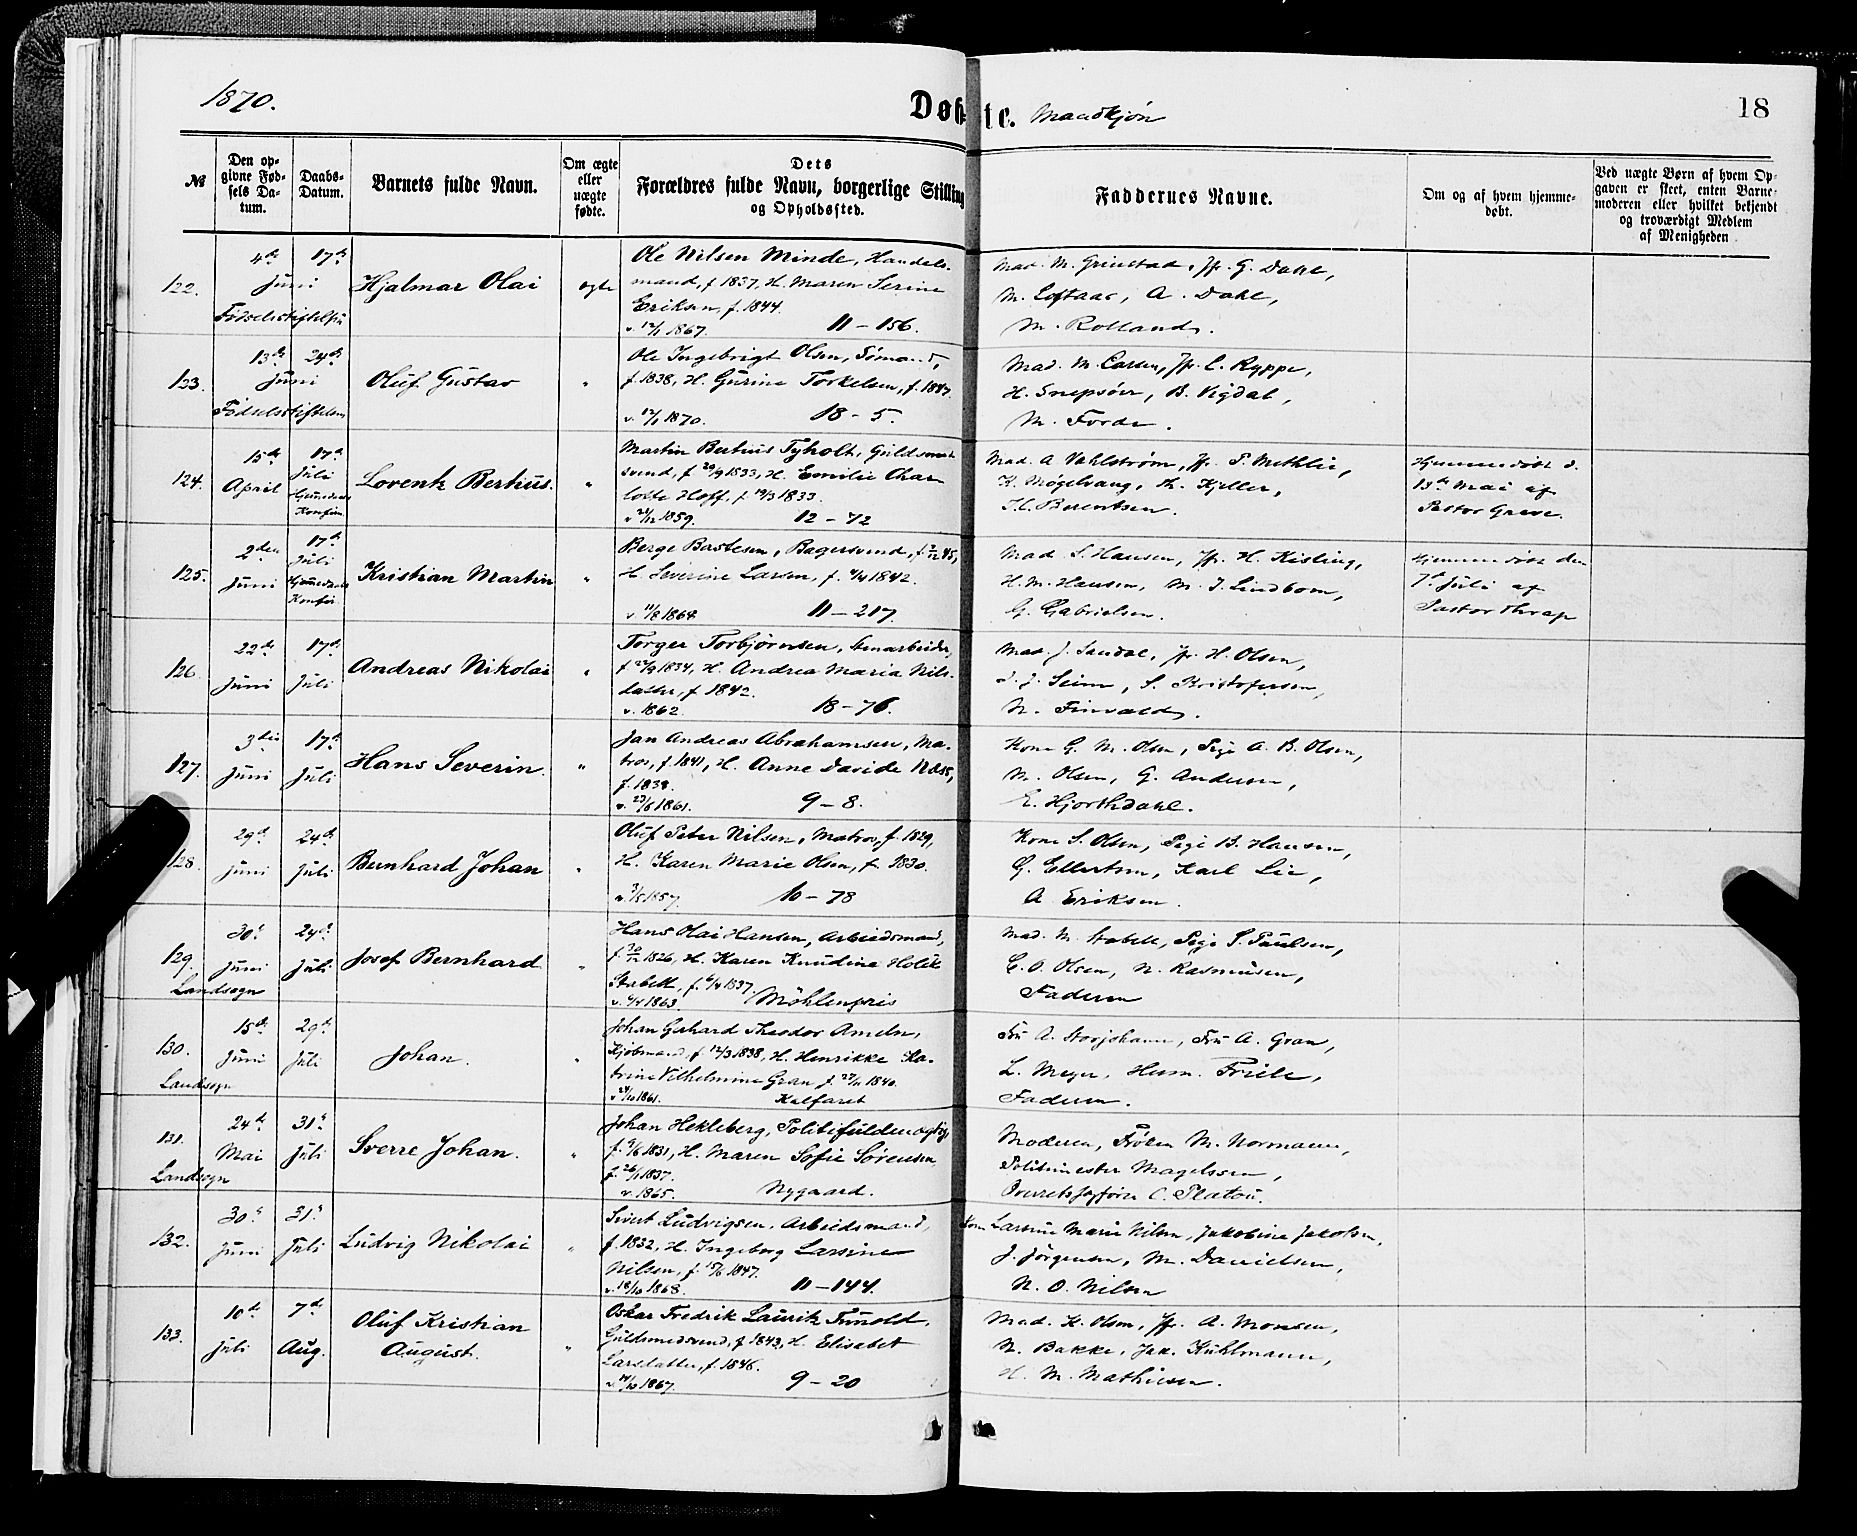 1870.
Døbte. Mandkjøn
18
№
Den opgivne Fødsels Datum.
Daabs-Datum.
Barnets fulde Navn.
Om ægte eller uægte fødte.
Dets Forældres fulde Navn, borgerlige Stilling og Opholdssted.
Faddernes Navne.
Om og af hvem hjemmedøbt.
Ved uægte Børn af hvem Opgaven er skeet, enten Barnemoderen eller hvilket bekjendt og troværdigt Medlem af Menigheden
122.
4de 17de
Juni
Fødselsstiftelsen
Hjalmar Olai
ægte
Ole Nilsen Minde, Handels-
mand, f 1837, H. Maren Serine
Eriksen, f. 1844.
v. 12/1 1867. 11 – 156.
Mad. M. Grimstad, Jfr. G. Dahl,
M. Loftaas, A. Dahl,
M. Rolland.
123.
13de 24de
Juni
Fødselsstiftelsen
Oluf Gustav
"
Ole Ingebrigt Olsen, Sømand,
f. 1838, H. Gurine Torkelsen, f. 1847
v. 12/1 1870. 18 – 5.
Mad. M. Larsen, Jfr. L. Ryppe,
H. Snepsöer, B. Vigdal,
M. Forde.
124.
15de April
17de Juli
Lorentz Berhus.
"
Martin Bertius Tyholt, Guldsmed-
svend, f 20/9 1833, H. Emilie Char
lotte Hoff, f. 14/3 1833.
1859. 12 – 72
Mad. A Vahlstrøm, Jfr. P. Methlie,
K. Møgelvang, A. Kjeller,
J. C. Berentsen.
Hjemmedøbt d.
13de Mai af
Pastor Greve.
125.
2den Juni
17de Juli
Kristian Martin
"
Berge Bastesen, Bagersvend, f. 45,
H. Severine Larsen, f. 4/4 1842.
v 11/8 1864 11 – 217.
Mad S. Hansen, Jfr. H. Kisling,
H. M. Hansen, M. J. Lindbom,
G. Gabrielsen.
Hjemmedøbt den
7de Juli af
Pastor Thrap
126.
22de Juni
17de Juli
Andreas Nikolai
"
Torger Torbjørnsen, Stenarbeider,
f 1834, H. Andrea Maria Nils-
datter, f 1842.
v. 1862. 18 – 76.
Mad. J. Sandal, Jfr. H. Olsen,
J. J. Seim, S. Kristofersen,
N. Finvald.
127.
3die Juni
17de Juli
Hans Severin.
"
Jan Andreas Abrahamsen, Ma-
tros, f. 1841, H. Anne Davide Næss,
f. 1838.
1861. 9 – 8.
Kone G. M. Olsen, Pige A. B. Olsen,
M. Olsen, G. Andersen,
E. Hjorthdahl.
128.
29de Juni
24de Juli
Bernhard Johan
"
Oluf Peter Nilsen, Matros, f. 1829,
H. Karen Marie Olsen, f. 1830.
v. 3/5 1857. 10 – 78
Kone S. Olsen, Pige B. Hansen,
G. Ellertsen, Karl Lie,
A. Eriksen.
129.
30te Juni
24de Juli
Landsogn
Josef Bernhard
"
Hans Olai Hansen, Arbeidsmand,
f. 1826, H. Karen Knudine Holck
Stabell, f. 6/4 1837.
v. 4/4 1863 Möhlenpris
Mad. M. Stabell, Pige S. Paulsen,
C. O. Olsen, N. Rasmussen,
Faderen
130.
15de Juni
29de Juli
Landsogn
Johan.
"
Johan Gerhard Theodor Ameln,
Kjøbmand, f 12/3 1838, H. Henrikke Ka-
trine Vilhelmine Gran f. 1840.
1861. Kalfaret
Fru A. Storjohann, Fru A. Gran,
L. Meyer, Herm. Friele,
Faderen.
131.
24de Mai
31te Juli
Landsogn
Sverre Johan.
"
Johan Hekleberg, Politifuldmægtig,
f. 1831, H. Maren Sofie Sørensen
f. 26/1 1837.
v. 1865. Nygaard.
Moderen, Frøken M. Normann,
Politimester Magelssen,
Overretssagfører C. Platou.
132.
30te Juni
31te Juli
Ludvig Nikolai
"
Sivert Ludvigsen, Arbeidsmand,
f. 1832, H. Ingeborg Larsine
Nilsen, f. 1847.
v. 18/10 1868. 11 – 144.
Kone Larsine Marie Nilsen, Jakobine Jakobsen,
J. Jørgensen, M. Danielsen,
N. O. Nilsen
133.
10de Juli
7de Aug.
Oluf Kristian
August.
"
Oskar Fredrik Lauritz Tunold,
Guldsmedsvend, f 1843, H. Elisabet
Larsdatter, f. 1846.
1867. 9 – 20
Mad. K. Olsen, Jfr. A. Monsen,
N. Bakke, Jak. Kuhlmann,
H. M. Mathiesen.